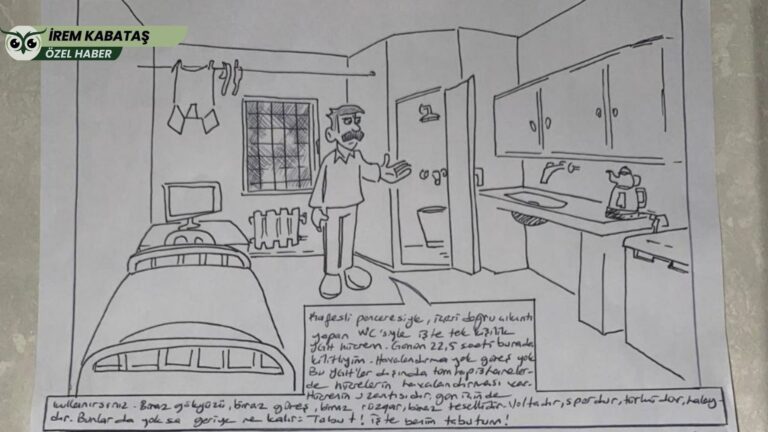 İREM KABATAŞ
ÖZEL HABER
Kafesli penceresiyle, içeri doğru çıkıntı
yapan WC'siyle işte tek kişilik
YGİT hücrem. Günün 22,5 saati burada
kilitliyim. Havalandırma yok güneş yok
Bu YGİT'ler dışında tüm hapishaneler-
de hücrelerin havalandırması var.
Hücrenin uzantısıdır, gün içinde
kullanırsınız. Biraz gökyüzü, biraz güneş, biraz rüzgar, biraz tesellidir. Voltadır, spordur, türküdür, halay-
dır. Bunlar da yoksa geriye ne kalır: Tabut! İşte benim tabutum!